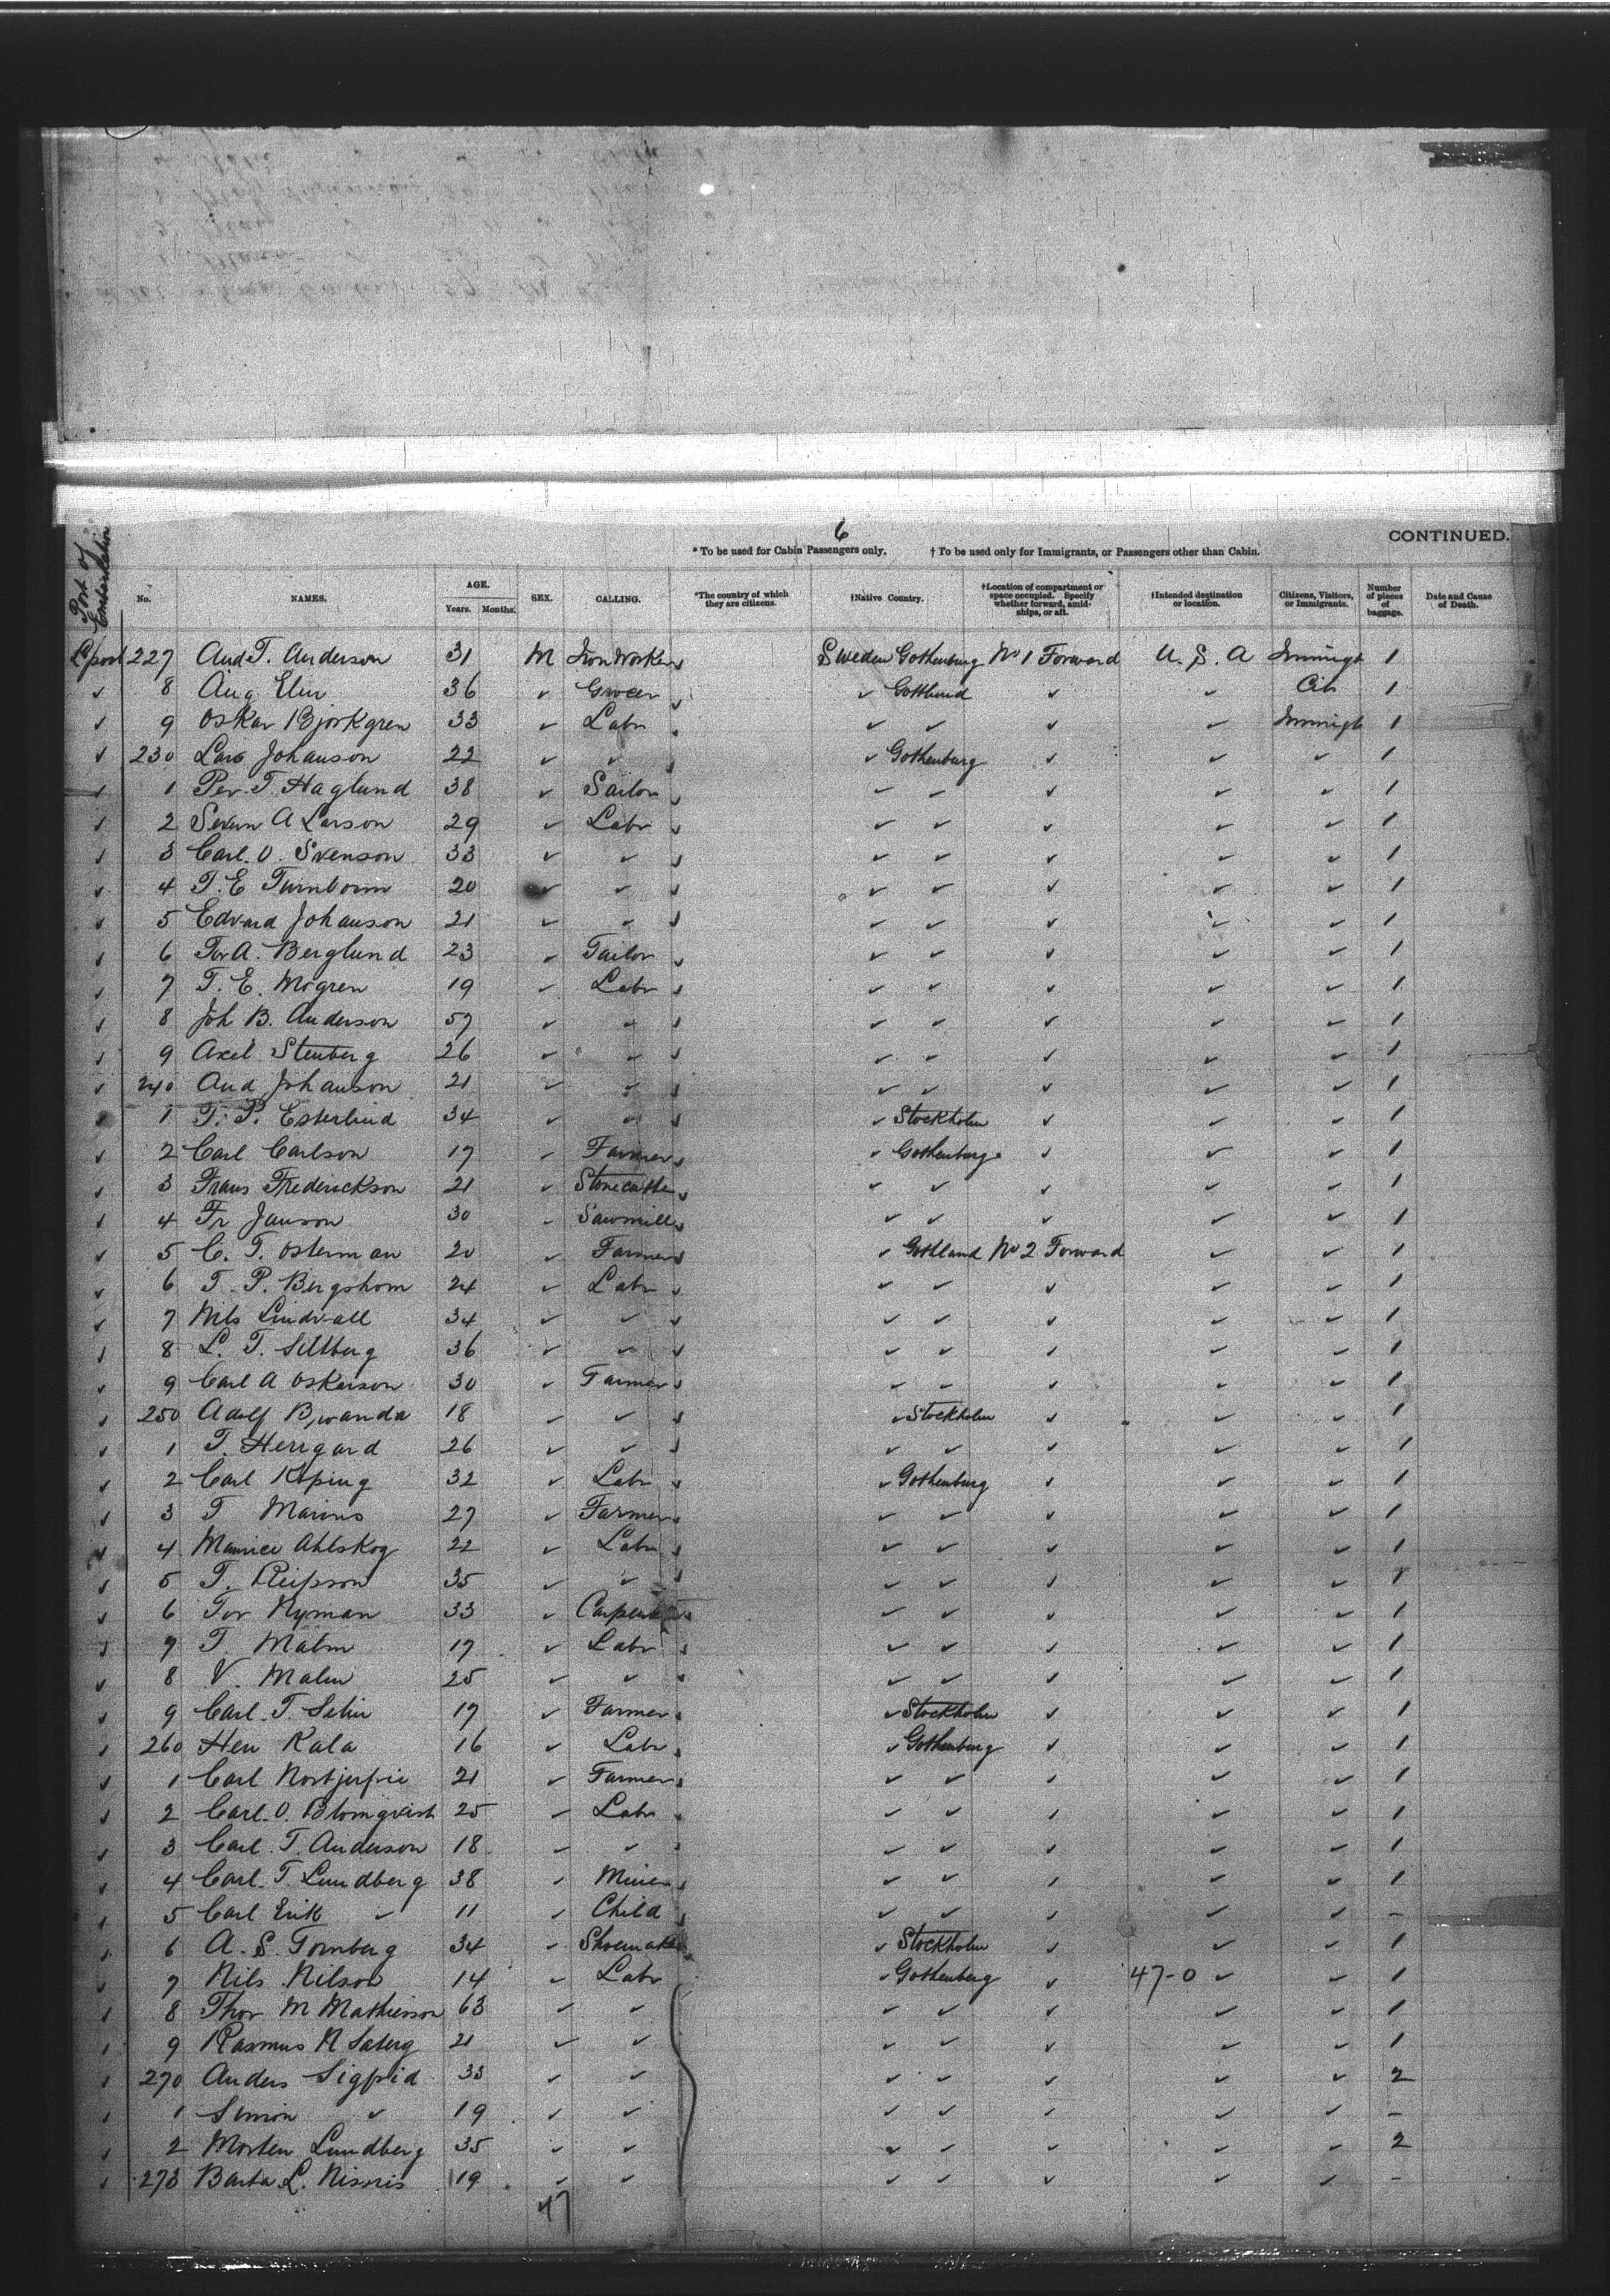 6
CONTINUED.
* To be used for Cabin Passengers only. † To be used only for Immigrants, or Passengers other than Cabin.
Port of Embarkation No. NAMES. AGE. Years. Months. SEX. CALLING. *The country of which they are citizens. †Native Country. †Location of compartment or space occupied. Specify whether forward, amidships, or aft. †Intended destination or location. Citizens, Visitors, or Immigrants. Number of pieces of baggage. Date and Cause of Death.
Lpool 227 And T. Anderson 31 M Iron Worker Sweden Gothenburg No 1 Forward U. S. A Immigt 1
✓ 8 Aug Elm 36 ✓ Grocer ✓ Gottland ✓ ✓ Cit 1
✓ 9 Oskar Bjorkgren 33 ✓ Labr ✓ ✓ ✓ ✓ Immigt 1
✓ 230 Lars Johanson 22 ✓ ✓ ✓ Gothenburg ✓ ✓ ✓ 1
✓ 1 Per. T. Haglund 38 ✓ Sailor ✓ ✓ ✓ ✓ ✓ 1
✓ 2 A Larson 29 ✓ Labr ✓ ✓ ✓ ✓ ✓ 1
✓ 3 Carl. O. Svenson 33 ✓ ✓ ✓ ✓ ✓ ✓ ✓ 1
✓ 4 T. E 20 ✓ ✓ ✓ ✓ ✓ ✓ ✓ 1
✓ 5 Edvard Johanson 21 ✓ ✓ ✓ ✓ ✓ ✓ ✓ 1
✓ 6 Tor A. Berglund 23 ✓ Tailor ✓ ✓ ✓ ✓ ✓ 1
✓ 7 T. E. Mogren 19 ✓ Labr ✓ ✓ ✓ ✓ ✓ 1
✓ 8 Joh B. Anderson 57 ✓ ✓ ✓ ✓ ✓ ✓ ✓ 1
✓ 9 Axel Stenberg 26 ✓ ✓ ✓ ✓ ✓ ✓ ✓ 1
✓ 240 And Johanson 21 ✓ ✓ ✓ ✓ ✓ ✓ ✓ 1
1 T. P. Esterlind 34 ✓ ✓ ✓ Stockholm ✓ ✓ ✓ 1
✓ 2 Carl Carlson 17 ✓ Farmer ✓ Gothenburg ✓ ✓ ✓ 1
✓ 3 Frans Frederickson 21 ✓ Stonecutter ✓ ✓ ✓ ✓ ✓ 1
✓ 4 Fr Janson 30 ✓ Sawmill ✓ ✓ ✓ ✓ ✓ 1
✓ 5 C. T. Osterman 20 ✓ Farmer ✓ Gothland No 2 Forward ✓ ✓ 1
✓ 6 T. P. Bergshom 24 ✓ Labr ✓ ✓ ✓ ✓ ✓ 1
✓ 7 Nils Lindvall 34 ✓ ✓ ✓ ✓ ✓ ✓ ✓ 1
✓ 8 L. T. Siltberg 36 ✓ ✓ ✓ ✓ ✓ ✓ ✓ 1
✓ 9 Carl A Oskarson 30 ✓ Farmer ✓ ✓ ✓ ✓ ✓ 1
✓ 250 Adolf 18 ✓ ✓ ✓ Stockholm ✓ ✓ ✓ 1
✓ 1 T. Herrgard 26 ✓ ✓ ✓ ✓ ✓ ✓ ✓ 1
✓ 2 Carl Koping 32 ✓ Labr ✓ Gothenburg ✓ ✓ ✓ 1
✓ 3 T Marins 27 ✓ Farmer ✓ ✓ ✓ ✓ ✓ 1
✓ 4 Maurice Ahlskog 22 ✓ Labr ✓ ✓ ✓ ✓ ✓ 1
✓ 5 T. 35 ✓ ✓ ✓ ✓ ✓ ✓ ✓ 1
✓ 6 Tor Nyman 33 ✓ Carpenter ✓ ✓ ✓ ✓ ✓ 1
✓ 7 T. Malm 17 ✓ Labr ✓ ✓ ✓ ✓ ✓ 1
✓ 8 V. Malm 25 ✓ ✓ ✓ ✓ ✓ ✓ ✓ 1
✓ 9 Carl. T. 17 ✓ Farmer ✓ Stockholm ✓ ✓ ✓ 1
✓ 260 Hen Kala 16 ✓ Labr ✓ Gothenburg ✓ ✓ ✓ 1
✓ 1 Carl 21 ✓ Farmer ✓ ✓ ✓ ✓ ✓ 1
✓ 2 Carl. O. Blomqvist 25 ✓ Labr ✓ ✓ ✓ ✓ ✓ 1
✓ 3 Carl. T. Anderson 18 ✓ ✓ ✓ ✓ ✓ ✓ ✓ 1
✓ 4 Carl. T. Lundberg 38 ✓ Miner ✓ ✓ ✓ ✓ ✓ 1
✓ 5 Carl Erik ✓ 11 ✓ Child ✓ ✓ ✓ ✓ ✓ –
✓ 6 A. S. Tornberg 34 ✓ Shoemaker ✓ Stockholm ✓ ✓ ✓ 1
✓ 7 Nils Nilson 14 ✓ Labr ✓ Gothenberg ✓ 47-0 ✓ ✓ 1
✓ 8 Thor M Mathieson 63 ✓ ✓ ✓ ✓ ✓ ✓ ✓ 1
✓ 9 Rasmus N Saterg 21 ✓ ✓ ✓ ✓ ✓ ✓ ✓ 1
✓ 270 Anders Sigfrid 33 ✓ ✓ ✓ ✓ ✓ ✓ ✓ 2
✓ 1 Simon ✓ 19 ✓ ✓ ✓ ✓ ✓ ✓ ✓ –
✓ 2 Morten Lundberg 35 ✓ ✓ ✓ ✓ ✓ ✓ ✓ 2
✓ 273 Barta L. 19 ✓ ✓ ✓ ✓ ✓ ✓ ✓ –
47